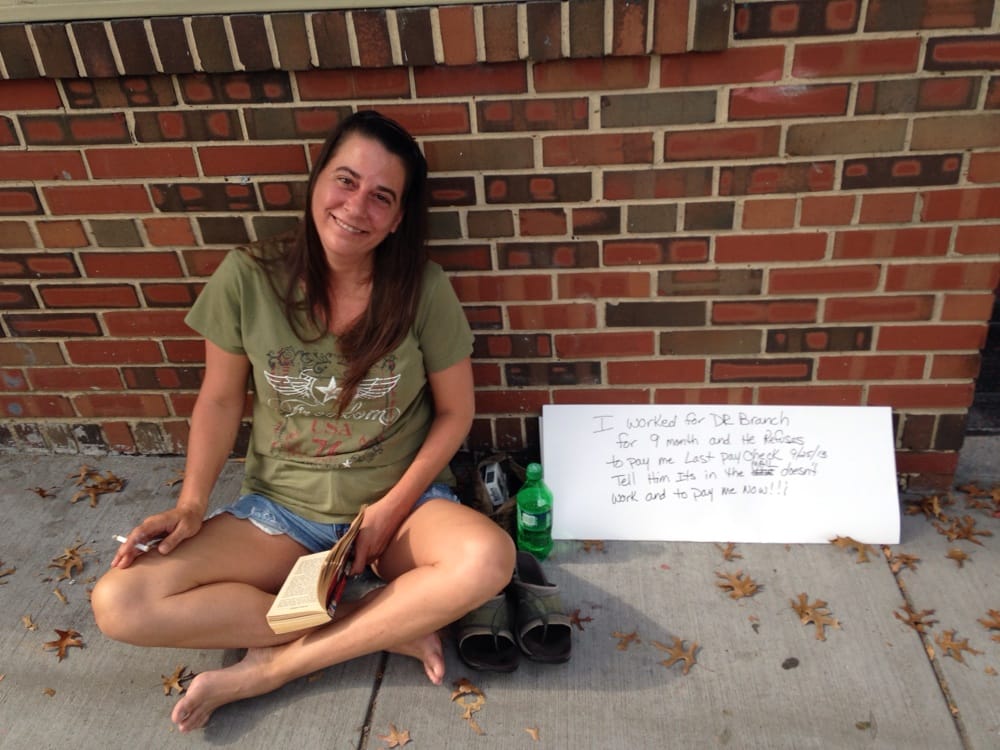 Freedom
USA
I worked for DR Branch
for 9 month and He Refuses
to pay me Last pay Check 9/25/13
Tell Him Its in the MAIL doesn't
work and to pay me Now!!!